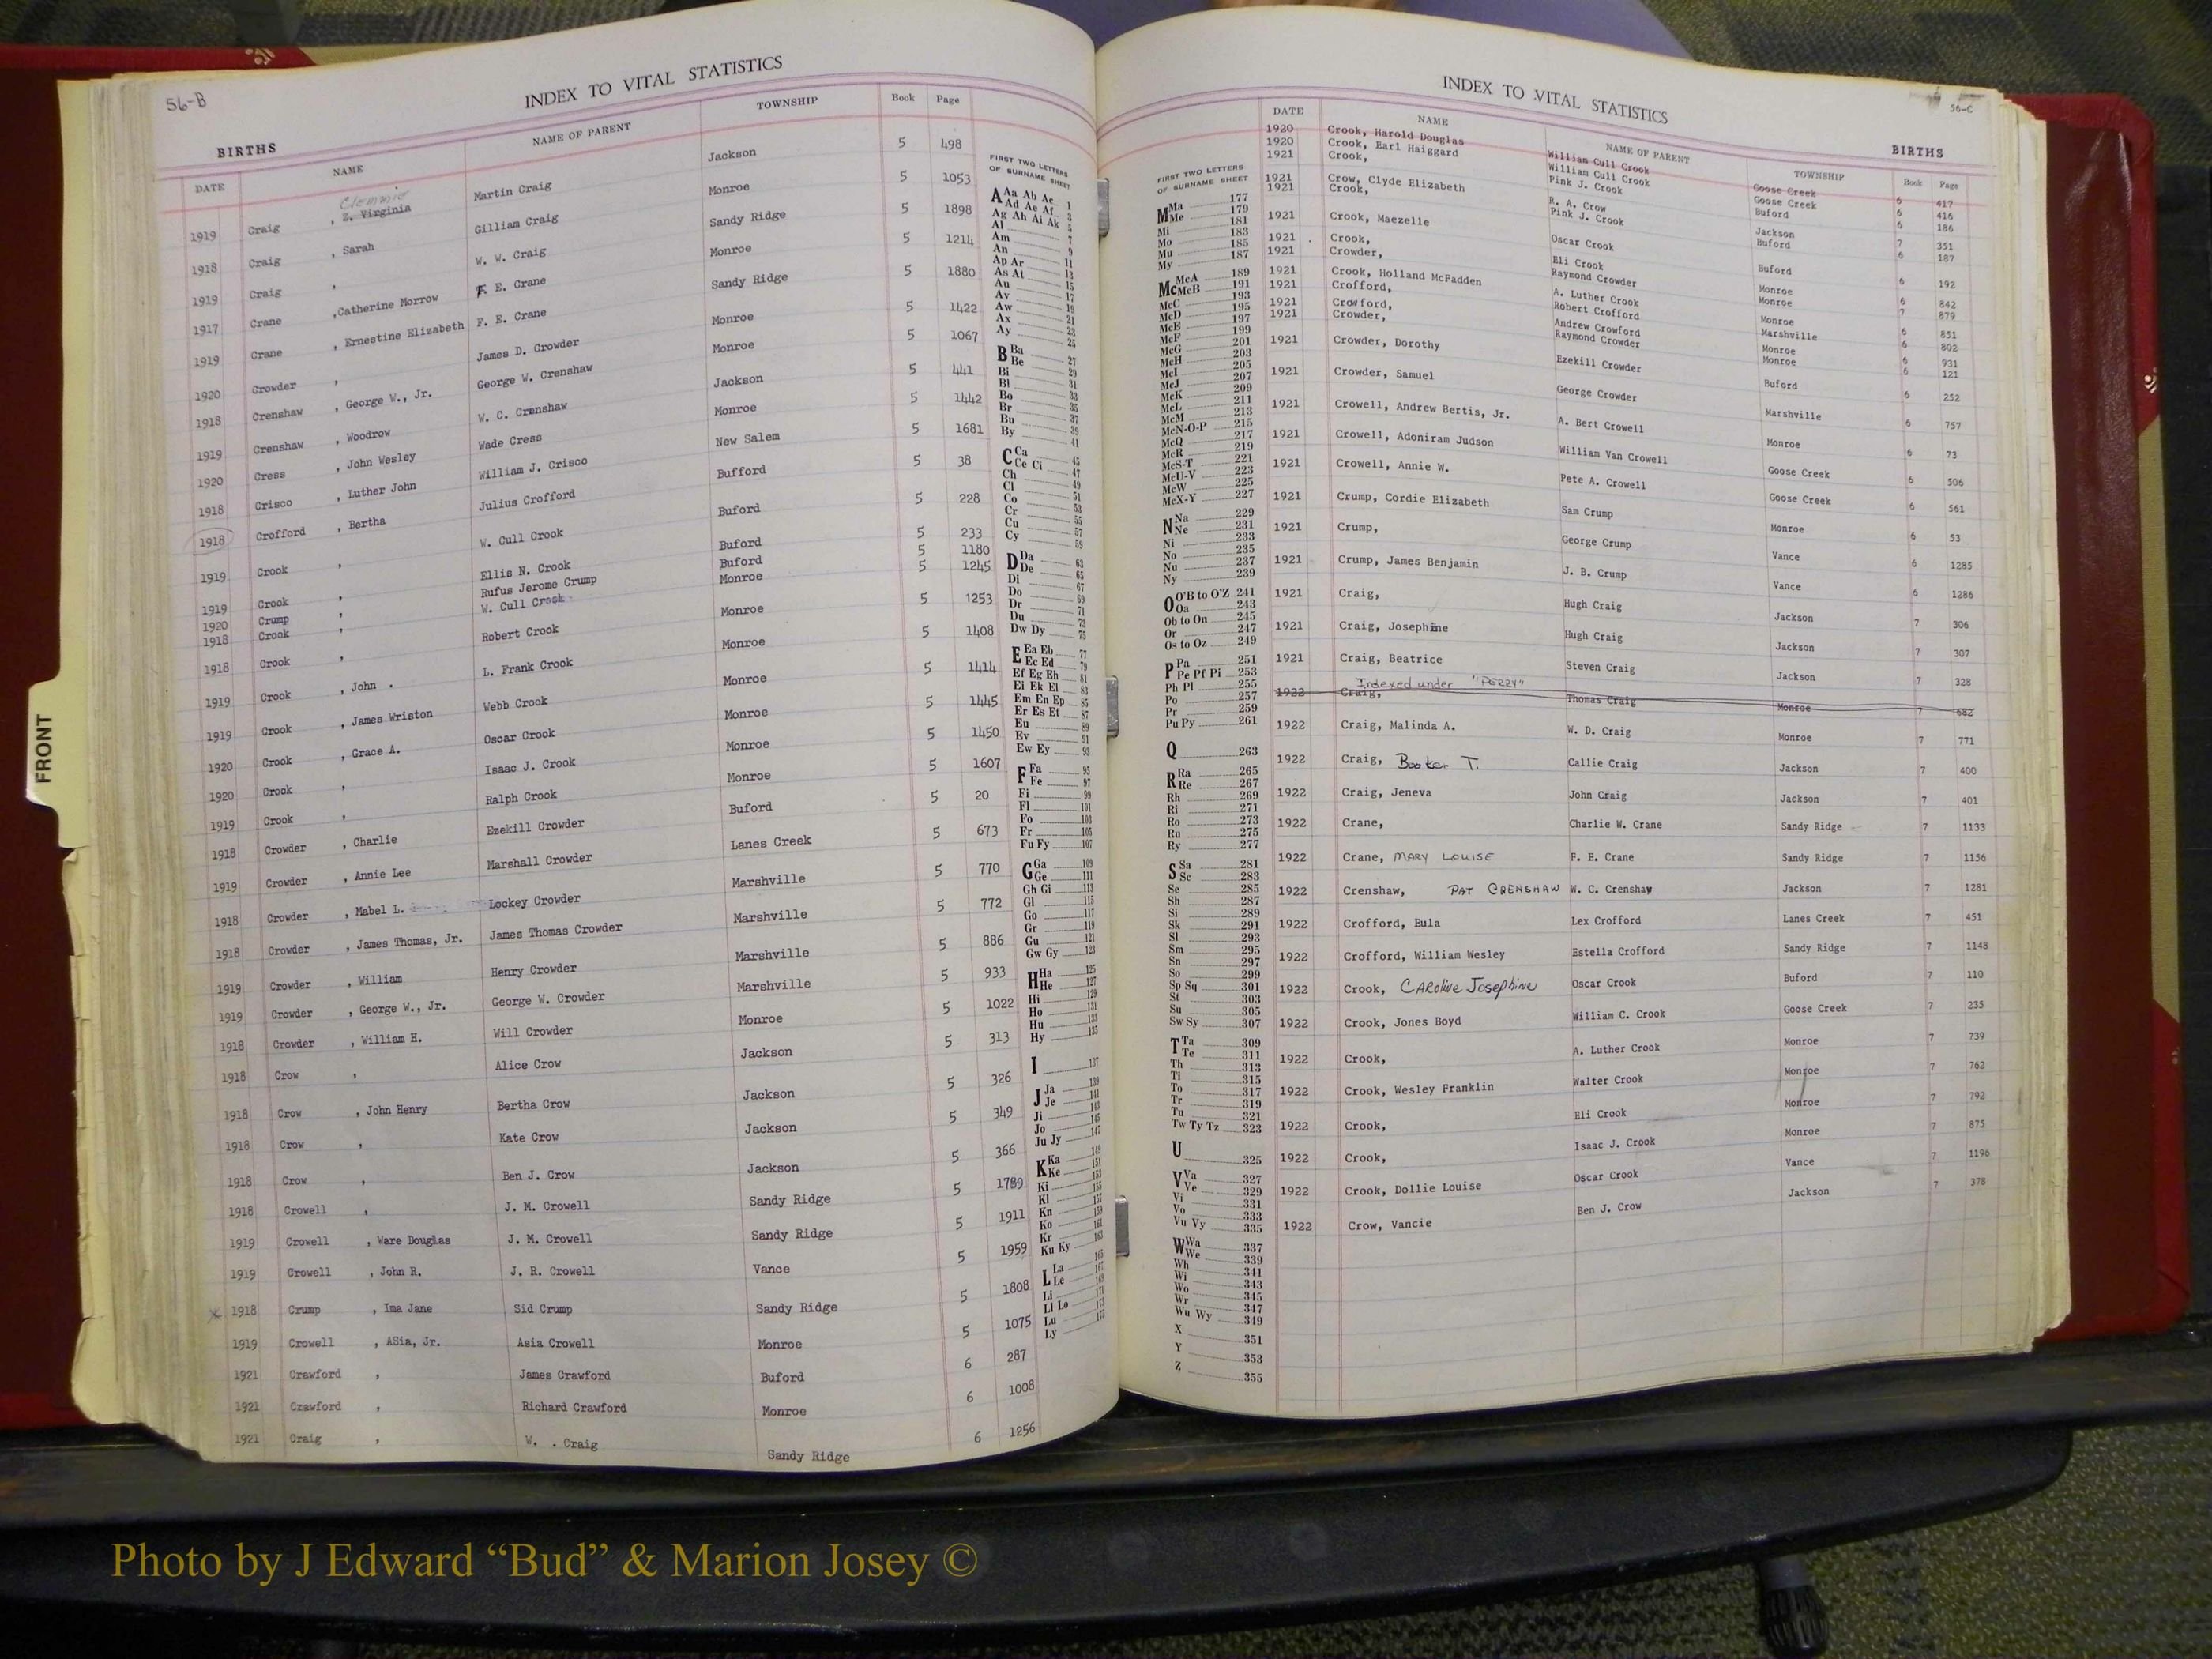 56-B
INDEX TO VITAL STATISTICS
BIRTHS
DATE NAME NAME OF PARENT TOWNSHIP Book Page
Clemmie
1919 Craig , Z. Virginia Martin Craig Jackson 5 498
1918 Craig , Sarah Gilliam Craig Monroe 5 1053
1919 Craig , W. W. Craig Sandy Ridge 5 1898
1917 Crane ,Catherine Morrow F. E. Crane Monroe 5 1214
1919 Crane , Ernestine Elizabeth F. E. Crane Sandy Ridge 5 1880
1920 Crowder , James D. Crowder Monroe 5 1422
1918 Crenshaw , George W., Jr. George W. Crenshaw Monroe 5 1067
1919 Crenshaw , Woodrow W. C. Crenshaw Jackson 5 441
1920 Cress , John Wesley Wade Cress Monroe 5 1442
1918 Crisco , Luther John William J. Crisco New Salem 5 1681
1918 Crofford , Bertha Julius Crofford Bufford 5 38
1919 Crook , W. Cull Crook Buford 5 228
1919 Crook , Ellis N. Crook Buford 5 233
1920 Crump , Rufus Jerome Crump Buford 5 1180
1918 Crook , W. Cull Crook Monroe 5 1245
1918 Crook , Robert Crook Monroe 5 1253
1919 Crook , John . L. Frank Crook Monroe 5 1408
1919 Crook , James Wriston Webb Crook Monroe 5 1414
1920 Crook , Grace A. Oscar Crook Monroe 5 1445
1920 Crook , Isaac J. Crook Monroe 5 1450
1919 Crook , Ralph Crook Monroe 5 1607
1918 Crowder , Charlie Ezekill Crowder Buford 5 20
1919 Crowder , Annie Lee Marshall Crowder Lanes Creek 5 673
1918 Crowder , Mabel L. Lockey Crowder Marshville 5 770
1918 Crowder , James Thomas, Jr. James Thomas Crowder Marshville 5 772
1919 Crowder , William Henry Crowder Marshville 5 886
1919 Crowder , George W., Jr. George W. Crowder Marshville 5 933
1918 Crowder , William H. Will Crowder Monroe 5 1022
1918 Crow , Alice Crow Jackson 5 313
1918 Crow , John Henry Bertha Crow Jackson 5 326
1918 Crow , Kate Crow Jackson 5 349
1918 Crow , Ben J. Crow Jackson 5 366
1918 Crowell , J. M. Crowell Sandy Ridge 5 1789
1919 Crowell , Ware Douglas J. M. Crowell Sandy Ridge 5 1911
1919 Crowell , John R. J. R. Crowell Vance 5 1959
x 1918 Crump , Ima Jane Sid Crump Sandy Ridge 5 1808
1919 Crowell , ASia, Jr. Asia Crowell Monroe 5 1075
1921 Crawford , James Crawford Buford 6 287
1921 Crawford , Richard Crawford Monroe 6 1008
1921 Craig , W. . Craig Sandy Ridge 6 1256
FIRST TWO LETTERS
OF SURNAME SHEET
A Aa Ab Ac 1
Ad Ae Af 3
Ag Ah Ai Ak 5
Al 7
Am 9
An 11
Ap Ar 13
As At 15
Au 17
Av 19
Aw 21
Ax 23
Ay 25
B Ba 27
Be 29
Bi 31
Bl 33
Bo 35
Br 37
Bu 39
By 41
C Ca 45
Ce Ci 47
Ch 49
Cl 51
Co 53
Cr 55
Cu 57
Cy 59
D Da 63
De 65
Di 67
Do 69
Dr 71
Du 73
Dw Dy 75
E Ea Eb 77
Ec Ed 79
Ef Eg Eh 81
Ei Ek El 83
Em En Ep 85
Er Es Et 87
Eu 89
Ev 91
Ew Ey 93
F Fa 95
Fe 97
Fi 99
Fl 101
Fo 103
Fr 105
Fu Fy 107
G Ga 109
Ge 111
Gh Gi 113
Gl 115
Go 117
Gr 119
Gu 121
Gw Gy 123
H Ha 125
He 127
Hi 129
Ho 131
Hu 133
Hy 135
I 137
J Ja 139
Je 141
Ji 143
Jo 145
Ju Jy 147
K Ka 149
Ke 151
Ki 153
Kl 155
Kn 157
Ko 159
Kr 161
Ku Ky 163
L La 165
Le 167
Li 169
Ll Lo 171
Lu 173
Ly 175
56-C
INDEX TO VITAL STATISTICS
BIRTHS
FIRST TWO LETTERS
OF SURNAME SHEET
M Ma 177
Me 179
Mi 181
Mo 183
Mu 185
My 187
Mc McA 189
McB 191
McC 193
McD 195
McE 197
McF 199
McG 201
McH 203
McI 205
McJ 207
McK 209
McL 211
McM 213
McN-O-P 215
McQ 217
McR 219
McS-T 221
McU-V 223
McW 225
McX-Y 227
N Na 229
Ne 231
Ni 233
No 235
Nu 237
Ny 239
O O'B to O'Z 241
Oa 243
Ob to On 245
Or 247
Os to Oz 249
P Pa 251
Pe Pf Pi 253
Ph Pl 255
Po 257
Pr 259
Pu Py 261
Q 263
R Ra 265
Re 267
Rh 269
Ri 271
Ro 273
Ru 275
Ry 277
S Sa 281
Sc 283
Se 285
Sh 287
Si 289
Sk 291
Sl 293
Sm 295
Sn 297
So 299
Sp Sq 301
St 303
Su 305
Sw Sy 307
T Ta 309
Te 311
Th 313
Ti 315
To 317
Tr 319
Tu 321
Tw Ty Tz 323
U 325
V Va 327
Ve 329
Vi 331
Vo 333
Vu Vy 335
W Wa 337
We 339
Wh 341
Wi 343
Wo 345
Wr 347
Wu Wy 349
X 351
Y 353
Z 355
DATE NAME NAME OF PARENT TOWNSHIP Book Page
1920 Crook, Harold Douglas William Cull Crook Goose Creek 6 417
1920 Crook, Earl Haiggard William Cull Crook Goose Creek 6 416
1921 Crook, Pink J. Crook Buford 6 186
1921 Crow, Clyde Elizabeth R. A. Crow Jackson 7 351
1921 Crook, Pink J. Crook Buford 6 187
1921 Crook, Maezelle Oscar Crook Buford 6 192
1921 Crook, Eli Crook Monroe 6 842
1921 Crowder, Raymond Crowder Monroe 7 879
1921 Crook, Holland McFadden A. Luther Crook Monroe 6 851
1921 Crofford, Robert Crofford Marshville 6 802
1921 Crowford, Andrew Crowford Monroe 6 931
1921 Crowder, Raymond Crowder Monroe 6 121
1921 Crowder, Dorothy Ezekill Crowder Buford 6 252
1921 Crowder, Samuel George Crowder Marshville 6 757
1921 Crowell, Andrew Bertis, Jr. A. Bert Crowell Monroe 6 73
1921 Crowell, Adoniram Judson William Van Crowell Goose Creek 6 506
1921 Crowell, Annie W. Pete A. Crowell Goose Creek 6 561
1921 Crump, Cordie Elizabeth Sam Crump Monroe 6 53
1921 Crump, George Crump Vance 6 1285
1921 Crump, James Benjamin J. B. Crump Vance 6 1286
1921 Craig, Hugh Craig Jackson 7 306
1921 Craig, Josephine Hugh Craig Jackson 7 307
1921 Craig, Beatrice Steven Craig Jackson 7 328
Indexed under "PERRY"
1922 Craig, Thomas Craig Monroe 7 682
1922 Craig, Malinda A. W. D. Craig Monroe 7 771
1922 Craig, Booker T. Callie Craig Jackson 7 400
1922 Craig, Jeneva John Craig Jackson 7 401
1922 Crane, Charlie W. Crane Sandy Ridge 7 1133
1922 Crane, MARY LOUISE F. E. Crane Sandy Ridge 7 1156
1922 Crenshaw, PAT CRENSHAW W. C. Crenshaw Jackson 7 1281
1922 Crofford, Eula Lex Crofford Lanes Creek 7 451
1922 Crofford, William Wesley Estella Crofford Sandy Ridge 7 1148
1922 Crook, CARoline Josephine Oscar Crook Buford 7 110
1922 Crook, Jones Boyd William C. Crook Goose Creek 7 235
1922 Crook, A. Luther Crook Monroe 7 739
1922 Crook, Wesley Franklin Walter Crook Monroe 7 762
1922 Crook, Eli Crook Monroe 7 792
1922 Crook, Isaac J. Crook Monroe 7 875
1922 Crook, Dollie Louise Oscar Crook Vance 7 1196
1922 Crow, Vancie Ben J. Crow Jackson 7 378
FRONT
Photo by J Edward “Bud” & Marion Josey ©